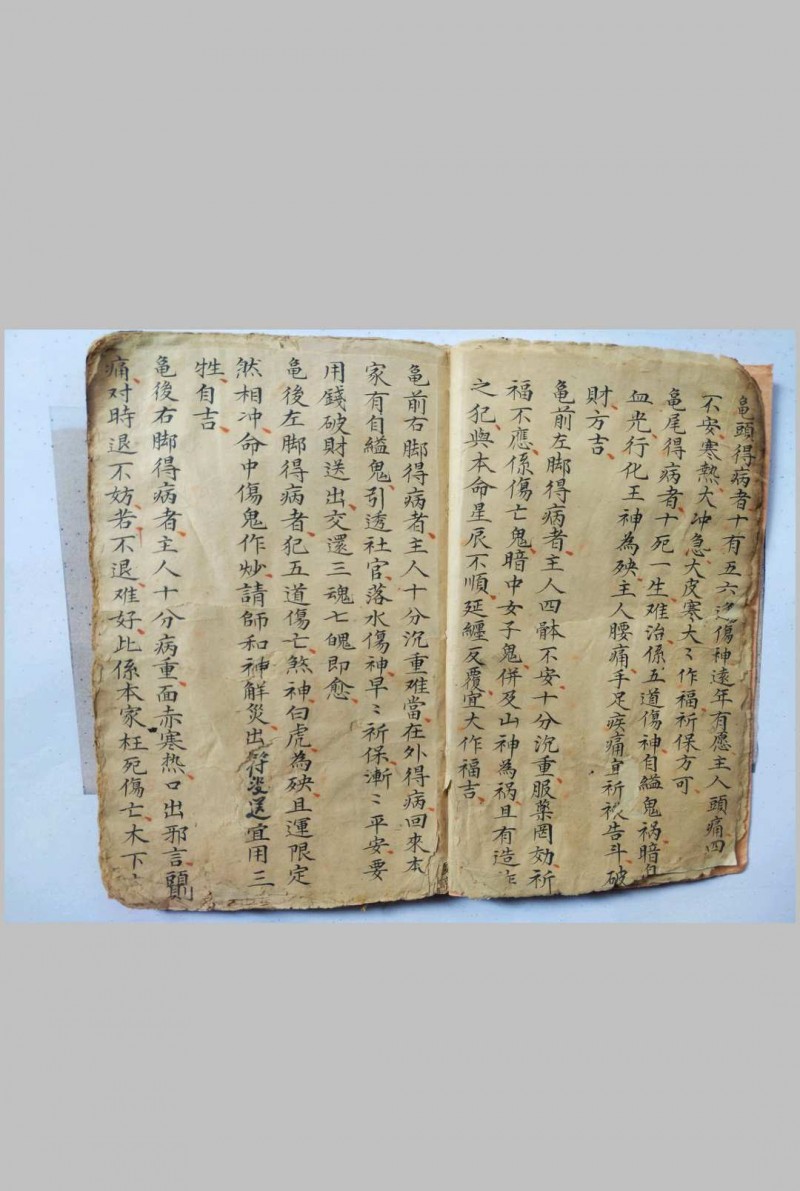 亀頭得病者十有五六
不安寒熱大冲急大皮寒大〻作福祈保方可
亀尾得病者十死一生难治係五道傷神自縊鬼祸暗
血光行化王神為殃主人腰痛手足疾痛宜祈禳告斗破
財方吉
亀前左脚得病者主人四骵不安十分沉重服藥罔効祈
福不應係傷亡鬼暗中女子鬼併及山神為祸且有造作
之犯與本命星辰不順延纏反覆宜大作福吉
亀前右脚得病者主人十分沉重难當在外得病回來本
家有自縊鬼引透社官落水傷神早〻祈保漸〻平安要
用錢破財送出交還三魂七魄即愈
亀後左脚得病者犯五道傷亡煞神白虎為殃且運限定
然相冲命中傷鬼作炒請師和神解災出符發送宜用三
牲自吉
亀後右脚得病者主人十分病重面赤寒热口出邪言
痛对時退不妨若不退难好比係本家枉死傷亡木下